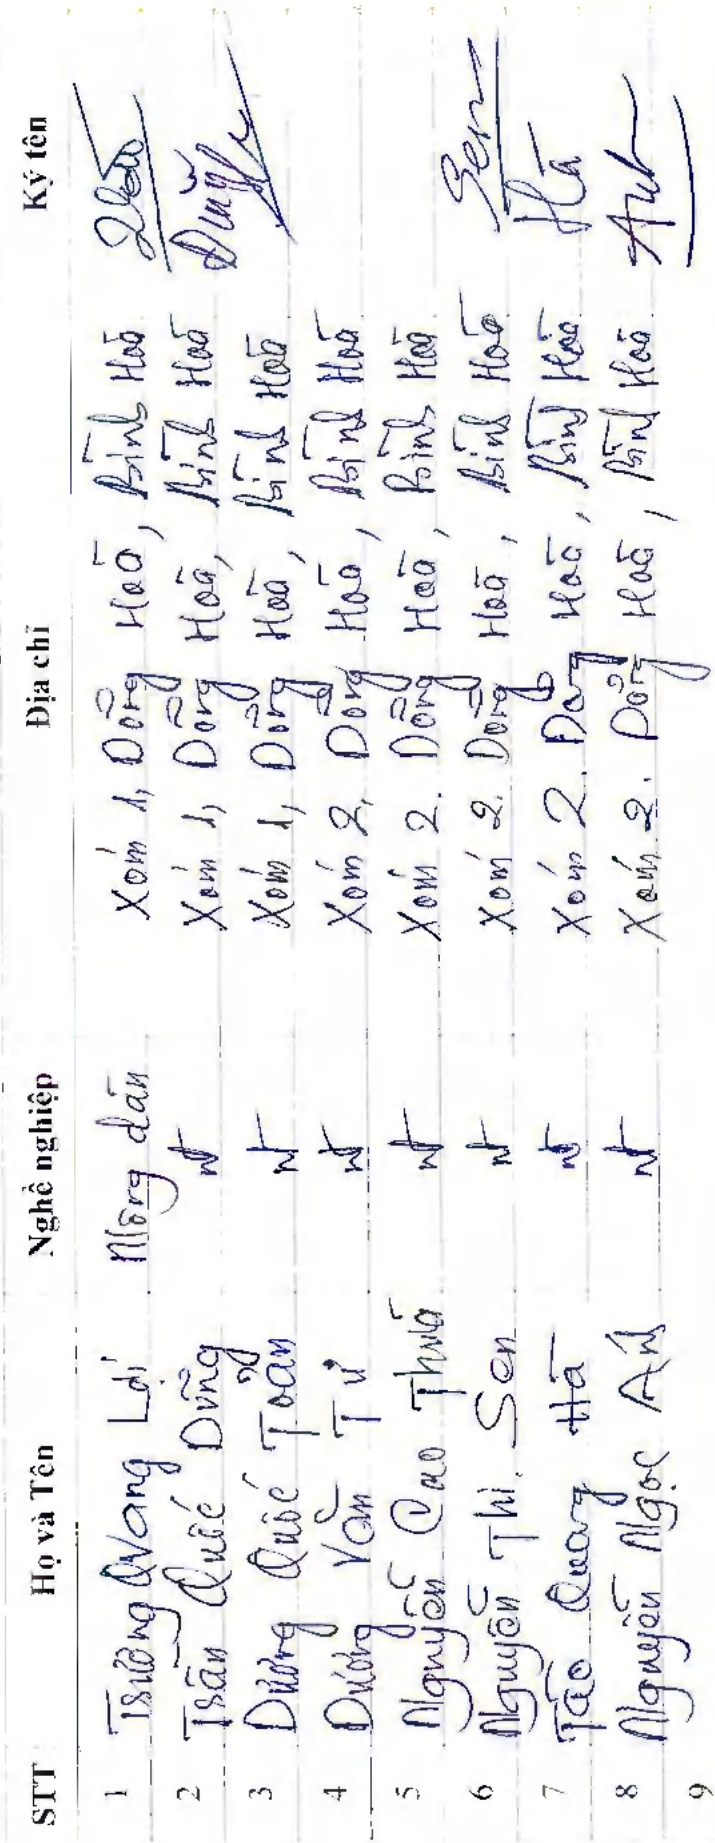 STT Họ và Tên Nghề nghiệp Địa chỉ Ký tên
1 Trương Quang Lợi Nông dân Xóm 1, Đông Hoà, Bình Hoà
2 Trần Quốc Dũng nt Xóm 1, Đông Hoà, Bình Hoà Dũng
3 Dương Quốc Toản nt Xóm 1, Đông Hoà, Bình Hoà
4 Dương Văn Tư nt Xóm 2, Đông Hoà, Bình Hoà
5 Nguyễn Cao nt Xóm 2. Đông Hoà, Bình Hoà
6 Nguyễn Thị Sen nt Xóm 2. Đông Hoà, Bình Hoà Sen
7 Quang Hà nt Xóm 2. Đông Hoà, Bình Hoà Hà
8 Nguyễn Ngọc Ánh nt Xóm 2. Đông Hoà, Bình Hoà Anh
9